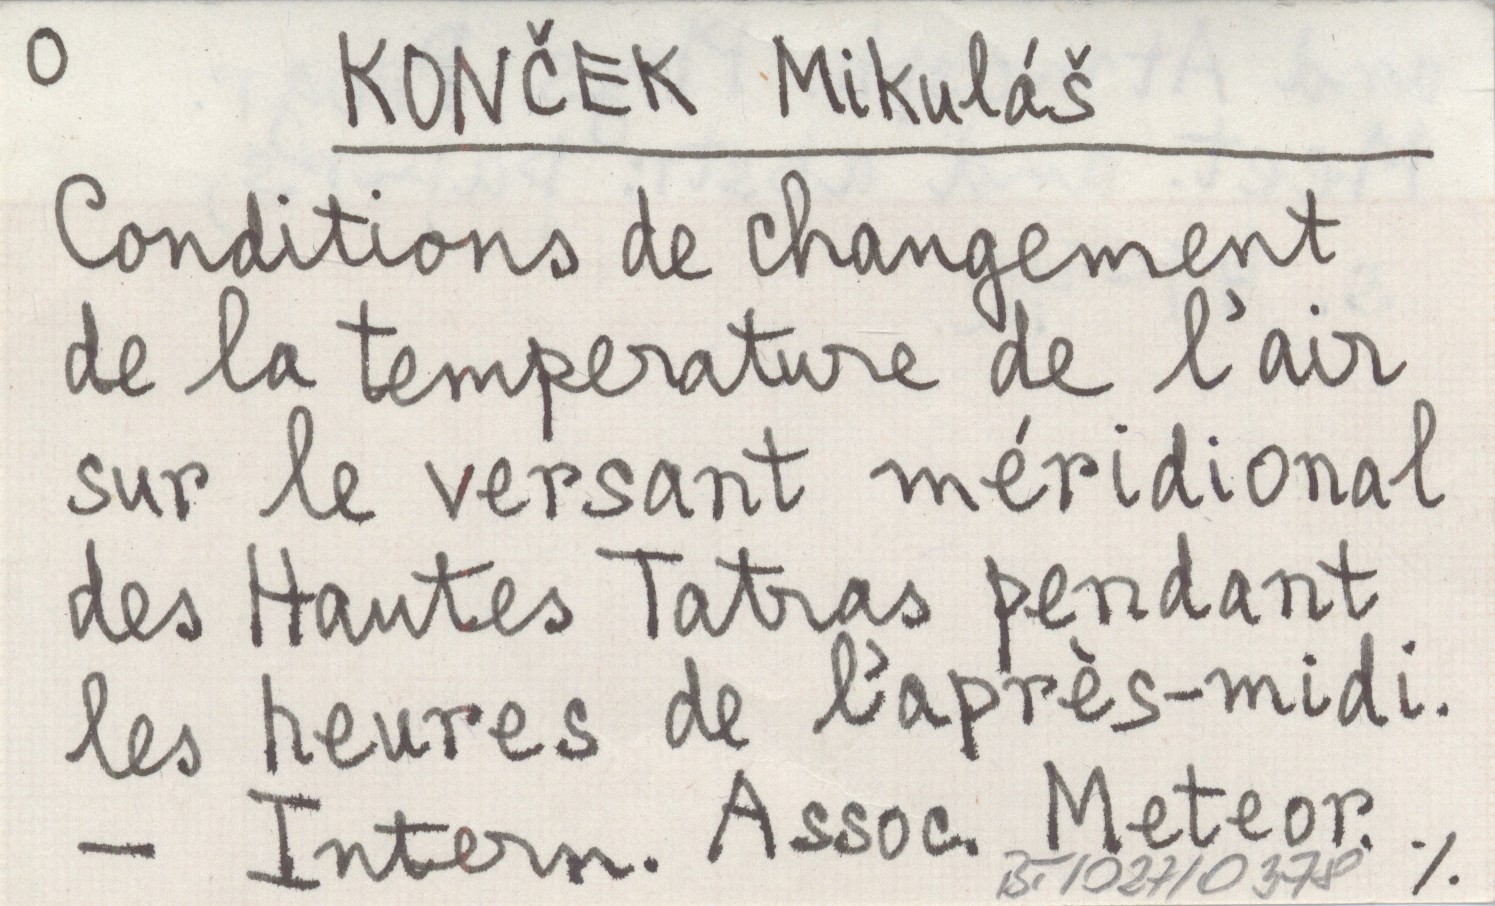 O KONČEK Mikuláš
Conditions de changement
de la temperature de l'air
sur le versant méridional
des Hautes Tatras pendant
les heures de l'après-midi.
— Intern. Assoc. Meteor. ·/.